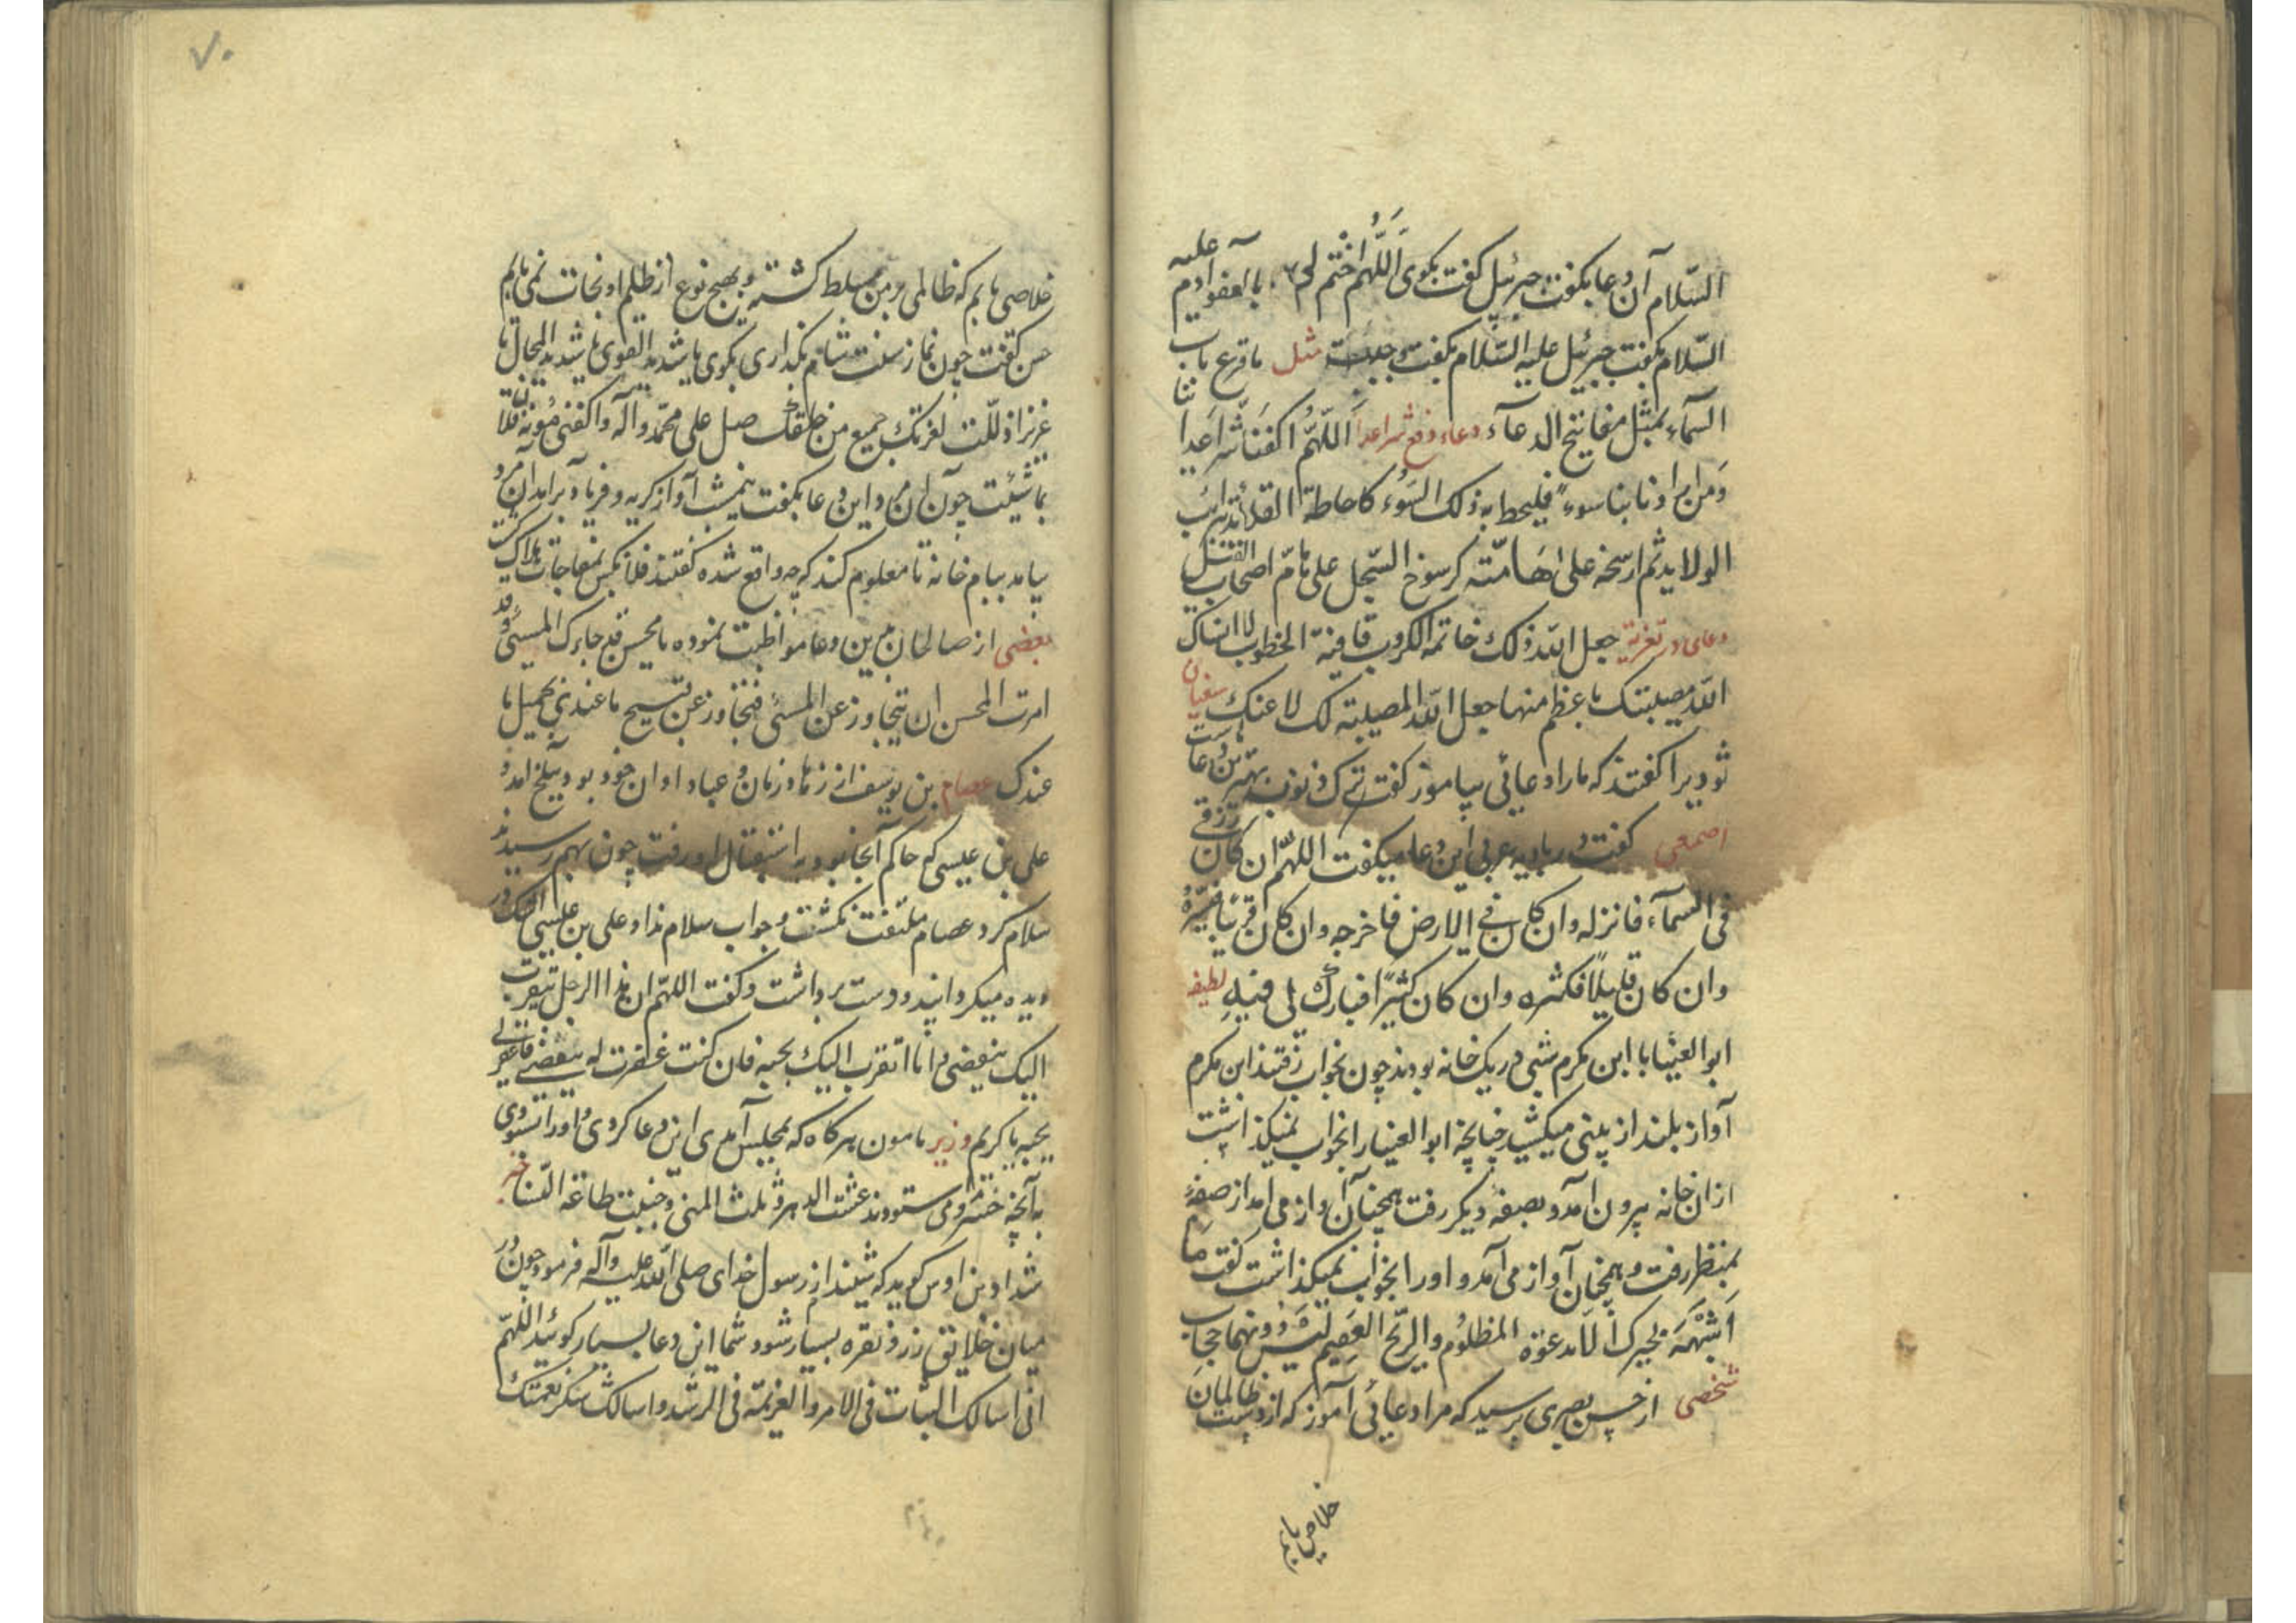 السّلام آن دعا بگفت جبرئیل گفت بگوی اَللّهُمَ اختم لی بالعفو آدم علیه
السّلام بگفت جبرئیل علیه السّلام بگفت وجبت مثل ما قرع باب
السمآء بمثل مفاتیح الدعآء دعاء دفع شر اعدا اَللّهُمَّ اکفنا شر اعدائنا
وَمن ارادنا بنا سوء فلیحط به ذلک السَوُء کاحاطة القلائد بترائب
الولاید ثم ارسخه علی هَامّته کرسوخ السّجیل علی هام اصحاب الفیل
دعای در تعزیة جعل الله ذلک خاتمه الکروب قافیة الخطوب لا انساک
الله مصیبتک باعظم منها جعل الله المصیبة لک لا عنک سفیان
ثوریرا گفتند که ما را دعائی بیاموز گفت ترک ذنوب بهترین دعاهاست
اصمعی گفت در بادیه عربی این دعا میگفت اللهّم ان کان رزقی
فی السمآء فانزله وان کان فی الارض فاخرجه وان کان قریبًا فیسّره
وان کان قلیلًا فکثره وان کان کثیرًا فبارک لی فیهِ لطیفه
ابوالعینا با ابن مکرم شبی در یک خانه بودند چون بخواب رفتند ابن مکرم
آواز بلند از بینی میکشید چنانچه ابوالعینا را بخواب نمیگذاشت
ازان خانه بیرون آمد و بصفهٔ دیگر رفت همچنان آواز می آمد از صفهٔ
بمنظر رفت و همچنان آواز می آمد و او را بخواب نمیگذاشت گفت مَا
اَشبَهَ نخیرک اِلّا بدعوَة المظلوُم والریّح العَقِیم لَیسَ دونهما حجاب
شخصی از حسن بصری پرسید که مرا دعائی آموز که از دست ظالمان
خلاصی یابم
۷۰
خلاصی یابم که ظالمی بر من مسلط گشته و بهیچ نوع از ظلم او نجات نمی یابم
حسن گفت چون نماز سنت شام بگذاری بگوی یا شدید القوی یا شدید المحال یا
عزیز اذللت لعزتک جمیع من خلقک صل علی محمّد وآله واکفنی مؤنة فلان
بما شئت چون آن مرد این دعا بگفت نیمشب آواز گریه و فریاد برآمد آن مرد
بیامد ببام خانه تا معلوم کند که چه واقع شده گفتند فلانکس بمفاجات هلاک گشت
بعضی از صالحان برین دعا مواظبت نموده یا محسن قد جاءک المسیٔ وقد
امرت المحسن ان یتجاوز عن المسئ فتجاوز عن قبیح ما عندی بجمیل ما
عندک عصام بن یوسف از زهاد زمان و عباد اوان خود بود ببلخ آمد و
علی بن عیسی که حاکم آنجا بود به استقبال او رفت چون بهم رسیدند
سلام کرد عصام ملتفت نگشت و جواب سلام نداد علی بن عیسی اشک در
دیده میگردانید و دست برداشت و گفت اللهّم ان هذا الرجل یتقرب
الیک ببغضی و انا اتقرب الیک بحبه فان کنت غفرت له ببغضی فاغفر لی
بحبه یا کریم وزیر مامون هرگاه که بمجلس آمدی این دعا کردی و او را ستودی
به آنچه خسرو می ستودند عشت الدهر ونلت المنی وجنبت طاعة النسا خبر
شداد بن اوس گوید که شنیدم از رسول خدای صلی الله علیه وآله فرمود چون در
میان خلائق زر و نقره بسیار شود شما این دعا بسیار گوئید اللهّم
انی اسالک الثبات فی الامر والعزیمّة فی الرشد واسالک شکر نعمتک